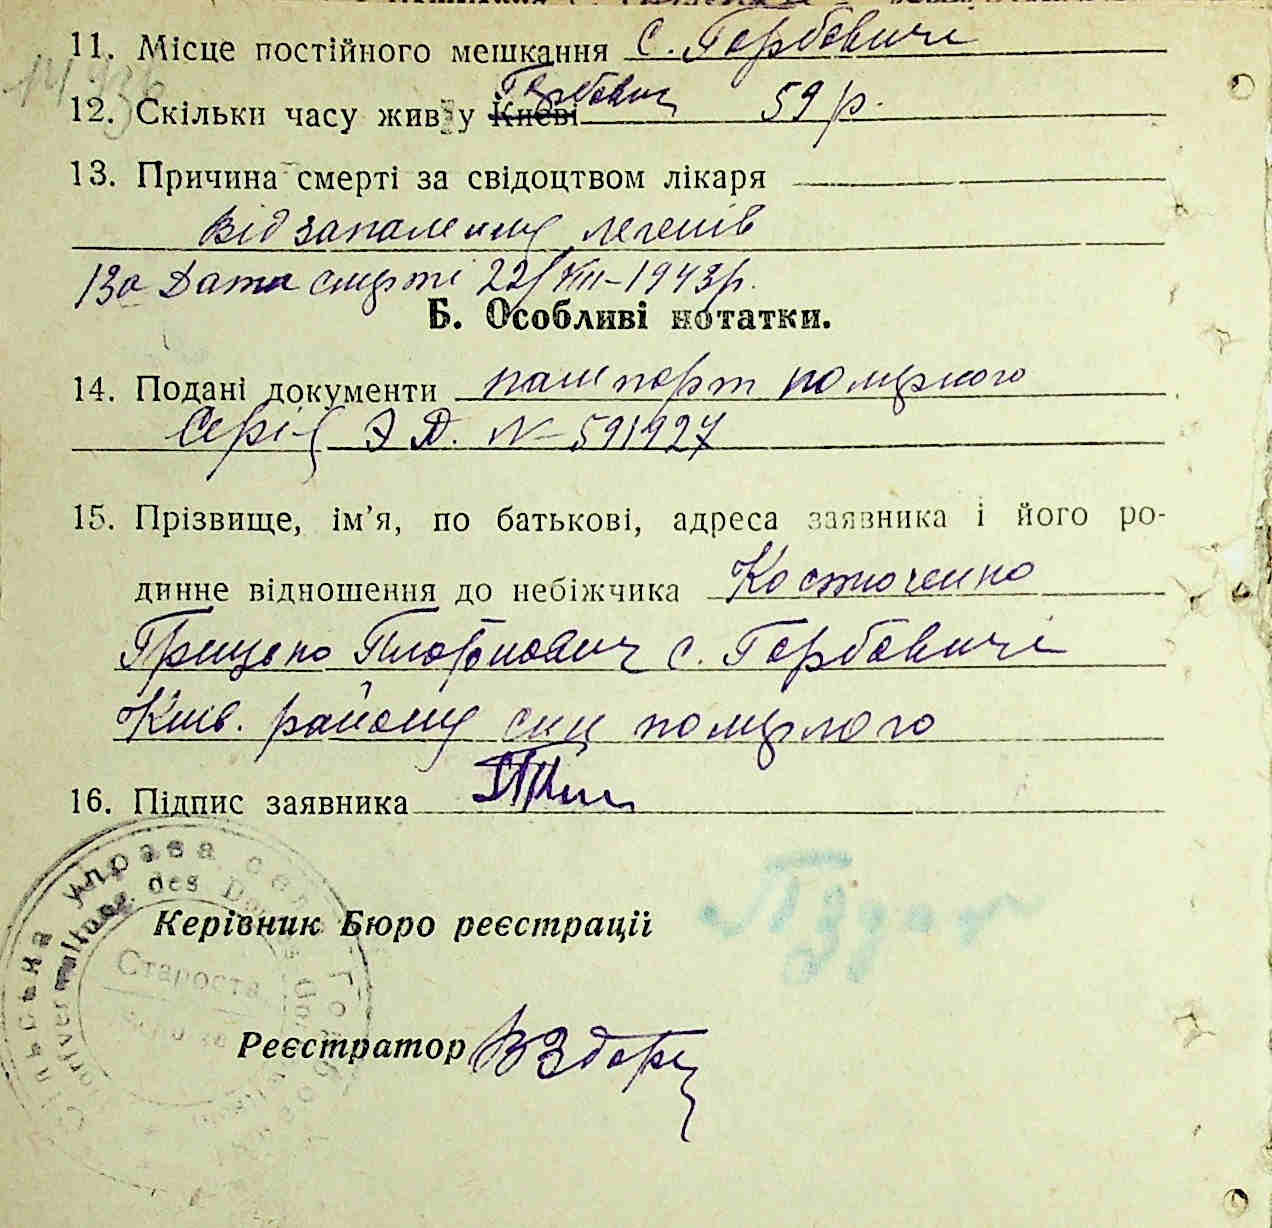 11. Місце постійного мешкання с. Горбовичі
12. Скільки часу жив у Києві Горбович 59 р.
13. Причина смерті за свідоцтвом лікаря
від запаленню легенів
13а Дата смерті 22/VIII-1943 р.
Б. Особливі нотатки.
14. Подані документи пашпорт померлого
Серія ЭД. № 591927
15. Прізвище, ім’я, по батькові, адреса заявника і його ро-
динне відношення до небіжчика Костюченко
Грицько Платонович с. Горбовичі
Київ. району син померлого
16. Підпис заявника
Сільська управа сел. Го
des Do
Староста
Керівник Бюро реєстрації
Реєстратор